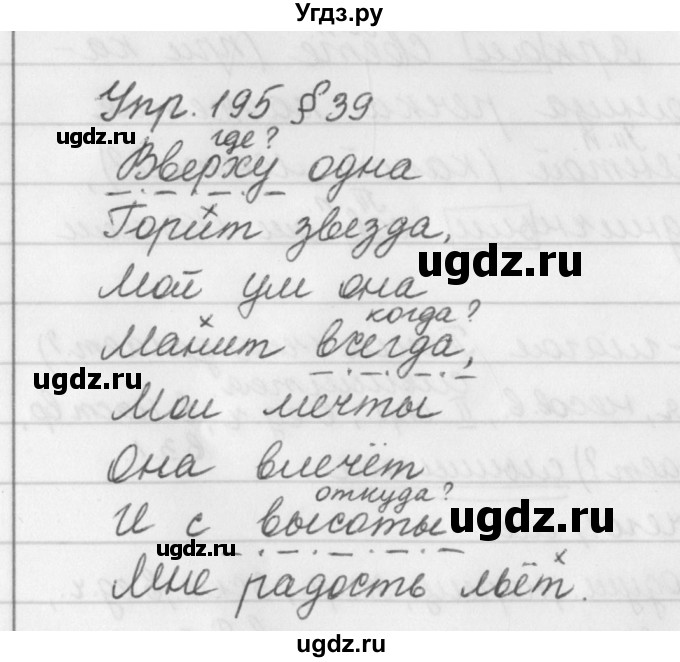 Угдз.ру
Упр. 195 § 39
где?
Вверху одна
Горит звезда,
ugdz.ru
Мой ум она
когда?
Манит всегда,
ugdz.ru
Мои мечты
Она влечёт
откуда?
И с высоты
ugdz.ru
ugdz.ru
Мне радость льёт.
ugdz.ru
ugdz.ru